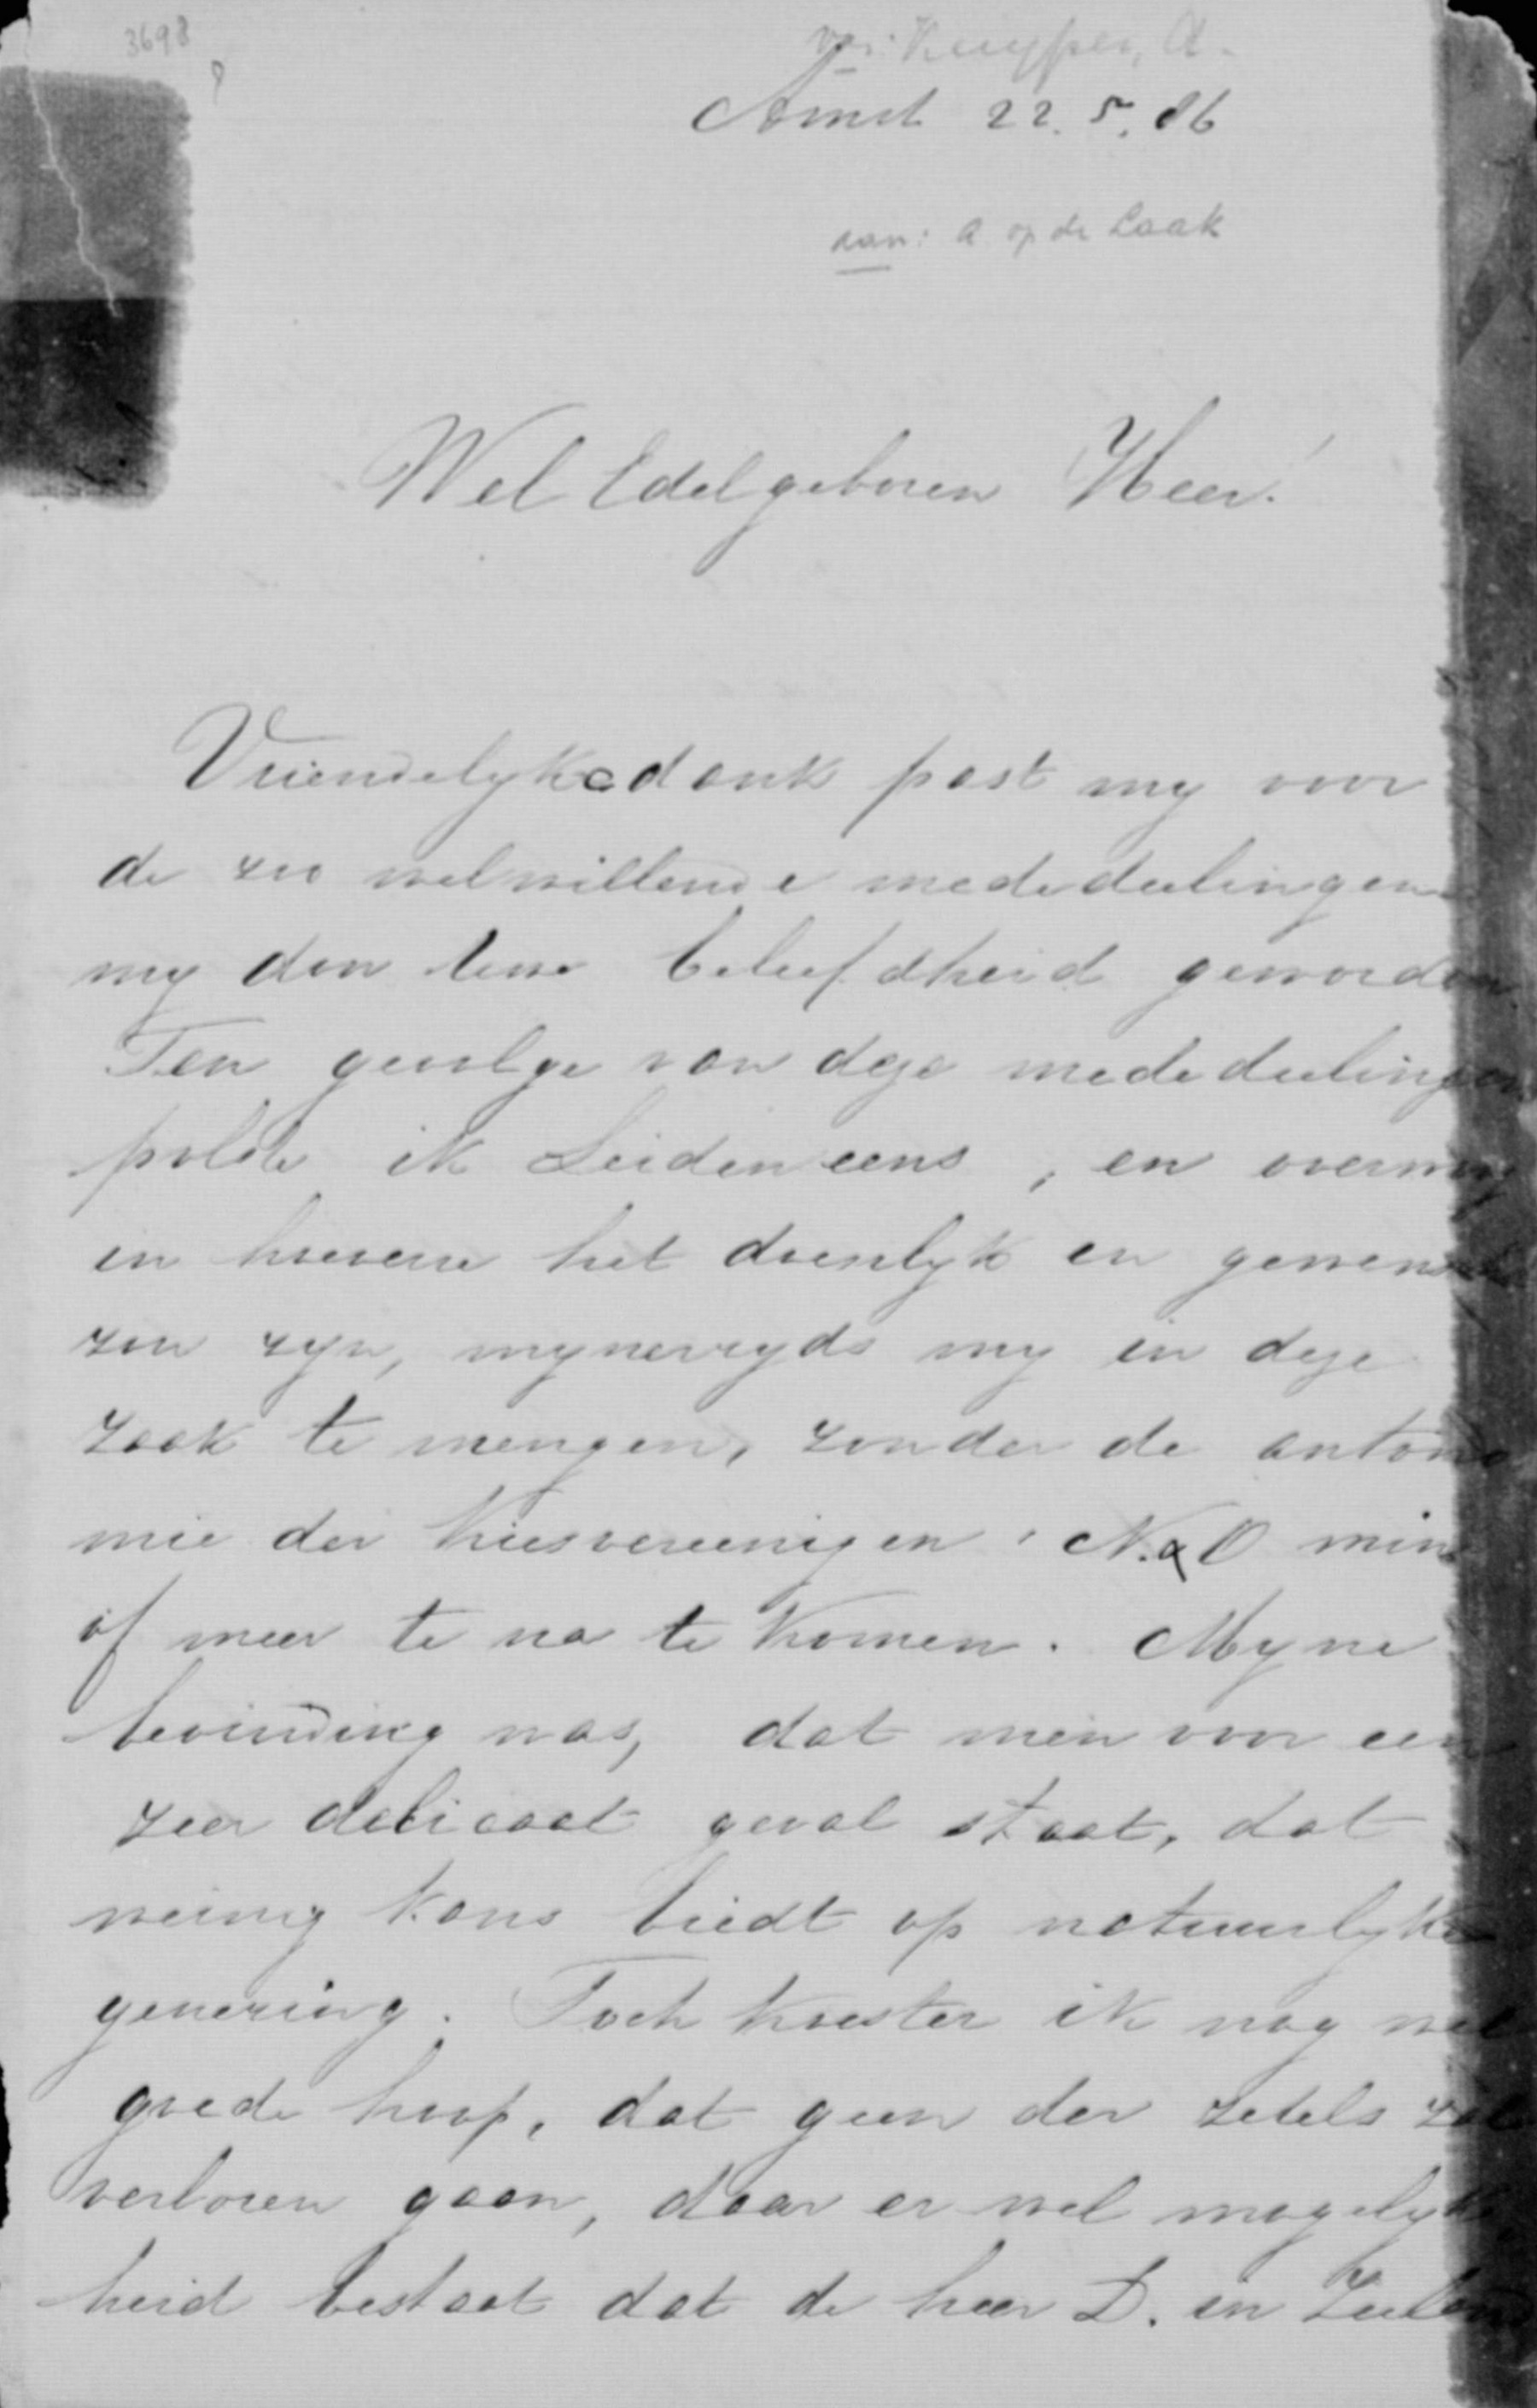 3698
van: Kuyper, A.
Amst 22.5.86
aan: A op de Laak
WelEdelgeboren Heer!
Vriendelyke dank past my voor
de zoo welwillende mededeelingen
my door Uwe beleefdheid geworden.
Ten gevolge van deze mededeelingen
polste ik Leiden eens, en overwoog
in hoeverre het doenlyk en gewenscht
zou zyn, mynerzyds my in deze
zaak te mengen, zonder de autono
mie der Kiesvereenigen N. & O min
of meer te na te komen. Myne
bevinding was, dat men voor een
zeer delicaat geval staat, dat
weinig kans biedt op natuurlyke
genezing. Toch koester ik nog wel
goede hoop, dat geen der zetels zal
verloren gaan, daar er wel mogelyk
heid bestaat dat de heer D. in Zeeland